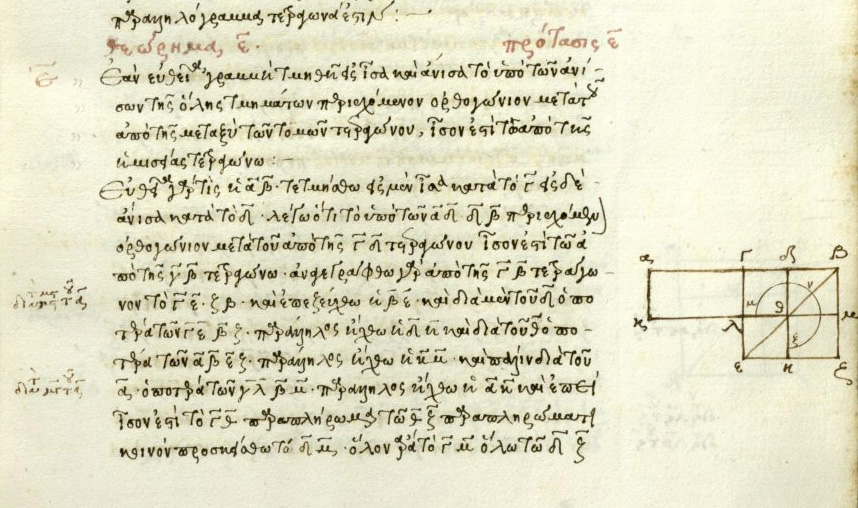 παραλληλόγραμμα τετράγωνά ἐστιν:
θεώρημα ε̄ · πρότασις ε̄
ε̄ Ἐὰν εὐθεῖα γραμμὴ τμηθῆ εἰς ἴσα καὶ ἄνισα τὸ ὑπὸ τῶν ἀνί-
σων τῆς ὅλης τμημάτων περιεχόμενον ὀρθογώνιον μετὰ τοῦ
ἀπὸ τῆς μεταξὺ τῶν τομῶν τετραγώνου, ἴσον ἐστὶ τῶ ἀπὸ τῆς
ἡμισείας τετραγώνω:
Εὐθεῖα γάρ τις ἡ ᾱβ̄ · τετμήσθω εἰς μὲν ἴσα κατὰ τὸ γ̄ εἰς δὲ
ἄνισα κατὰ τὸ δ̄ · λέγω ὅτι τὸ ὑπὸ τῶν ᾱδ̄ δ̄β̄ περιεχόμενον
ὀρθογώνιον μετὰ τοῦ ἀπὸ τῆς γ̄δ̄ τετραγώνου ἴσον ἐστὶ τῶ ἀ
πὸ τῆς γ̄β̄ τετραγώνω · ἀναγεγράφθω γὰρ ἀπὸ τῆς γ̄β̄ τετράγω-
νον τὸ γ̄ε̄ · ζβ · καὶ ἐπεζεύχθω ἡ β̄ε̄ · καὶ διὰ μὲν τοῦ δ̄ ὁπο
τέρα τῶν γ̄ε̄ β̄ζ̄ · παράλληλος ἤχθω ἡ δ̄η̄ καὶ διὰ τοῦ θ̄ ὁπο-
τέρα τῶν ᾱβ̄ ε̄ζ̄ · παράλληλος ἤχθω ἡ κ̄μ̄ · καὶ πάλιν διὰ τοῦ
ᾱ · ὁποτέρα τῶν γ̄λ̄ β̄μ̄ · παράλληλος ἤχθω ἡ ᾱκ̄ καὶ ἐπεὶ
ἴσον ἐστὶ τὸ γ̄θ̄ παραπλήρωμα τῶ θ̄ζ̄ παραπληρώματι
κοινὸν προσκείσθω τὸ δ̄μ̄ · ὅλον ἄρα τὸ γ̄μ̄ ὅλω τῶ δ̄ζ̄
α γ δ β
μ ν
κ λ θ μ
ξ
ε η ζ